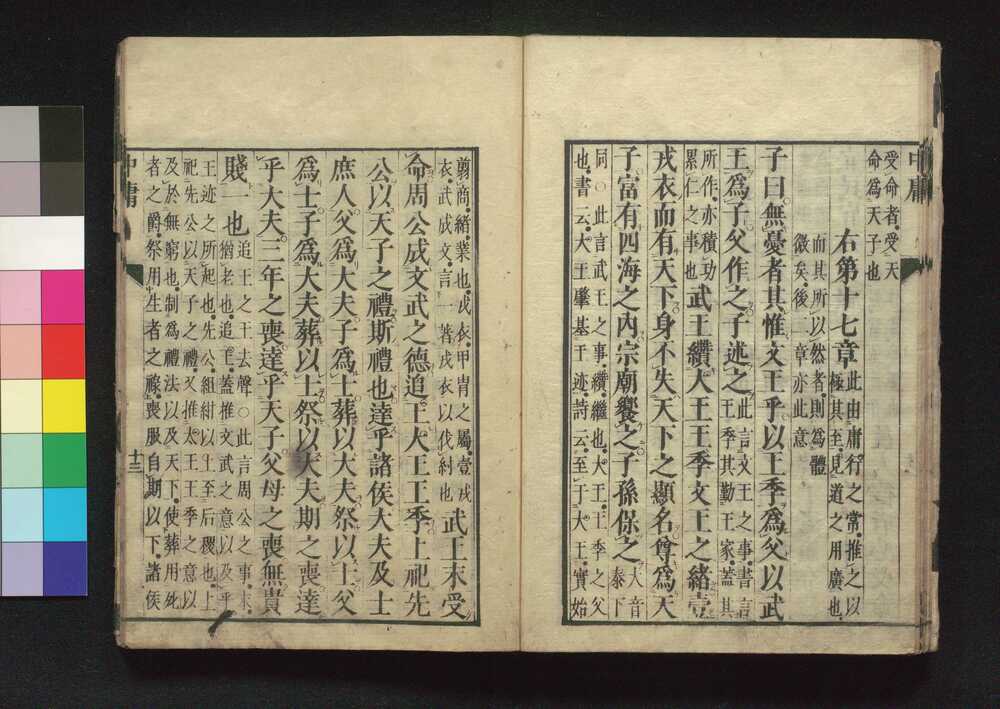 中庸
受命者受天
命爲天子也
右第十七章
此由庸行之常推之以
極其至見道之用廣也
而其所以然者則爲體
微矣後二章亦此意
子曰無憂者其惟文王乎以王季爲父以武
王爲子父作之子述之
此言文王之事書言
王季其勤王家蓋其
所作亦積功
累仁之事也
武王纘大王王季文王之緒壹
戎衣而有天下身不失天下之顯名尊爲天
子富有四海之內宗廟饗之子孫保之
大音
泰下
同○此言武王之事纘繼也大王王季之父
也書云大王肇基王迹詩云至于大王實始
翦商緒業也戎衣甲冑之屬壹戎
衣武成文言一著戎衣以伐紂也
武王末受
命周公成文武之德追王大王王季上祀先
公以天子之禮斯禮也達乎諸侯大夫及士
庶人父爲大夫子爲士葬以大夫祭以士父
爲士子爲大夫葬以士祭以大夫期之喪達
乎大夫三年之喪達乎天子父母之喪無貴
賤一也
追王之王去聲○此言周公之事末
猶老也追王蓋推文武之意以及乎
王迹之所起也先公組紺以上至后稷也上
祀先公以天子之禮又推太王王季之意以
及於無窮也制爲禮法以及天下使葬用死
者之爵祭用生者之祿喪服自期以下諸侯
中庸
十三